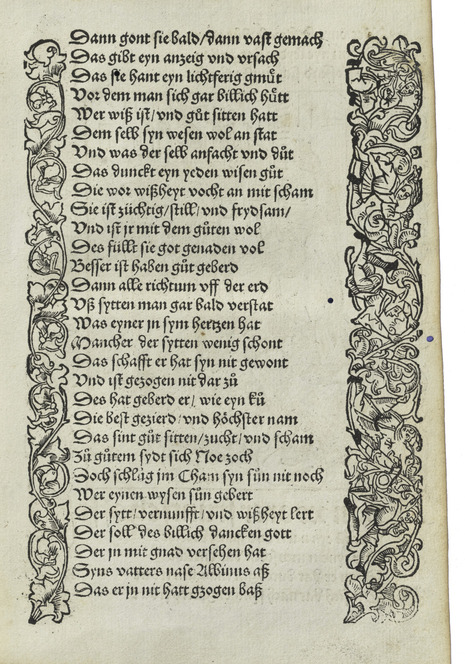 Dann gont sie bald/dann vast gemach
Das gibt eyn anzeig vnd vrsach
Das sie hant eyn lichtferig gmuͤt
Vor dem man sich gar billich huͤtt
Wer wiß ist/vnd guͦt sitten hatt
Dem selb syn wesen wol an stat
Vnd was der selb anfacht vnd duͦt
Das dunckt eyn yeden wisen guͦt
Die wor wißheyt vocht an mit scham
Sie ist zuͤchtig/still/vnd frydsam/
Vnd ist jr mit dem guͦten wol
Des fuͤllt sie got genaden vol
Besser ist haben guͦt geberd
Dann alle richtum vff der erd
Vß sytten man gar bald verstat
Was eyner jn sym hertzen hat
Mancher der sytten wenig schont
Das schafft er hat syn nit gewont
Vnd ist gezogen nit dar zuͦ
Des hat geberd er/ wie eyn kuͦ
Die best gezierd/vnd hoͤchster nam
Das sint guͦt sitten/zucht/vnd scham
Zuͦ guͦtem sydt sich Noe zoch
Doch schluͦg jm Cham syn suͦn nit noch
Wer eynen wysen suͦn gebert
Der sytt/vernunfft/vnd wißheyt lert
Der soll des billich dancken gott
Der jn mit gnad versehen hat
Syns vatters nase Albinus aß
Das er jn nit hatt gzogen baß